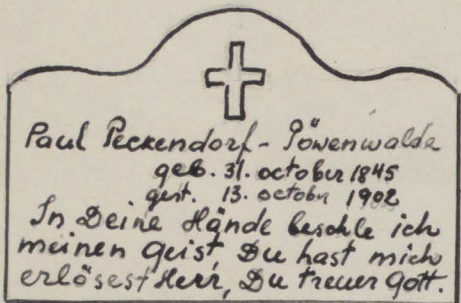 Paul Peckendorf - Löwenwalde
geb. 31. october 1845
gest. 13. october 1902
In Deine Hände befehle ich
meinen Geist, Du hast mich
erlösest Herr, Du treuer Gott.